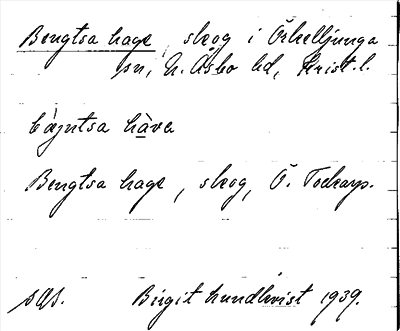 Bengtsa hage, skog i Örkelljunga
sn, N. Åsbo hd, Krist. l.
bàjntsa hàva
Bengtsa hage, skog, Ö. Tockarp.
sgs. Birgit Lundkvist 1939.